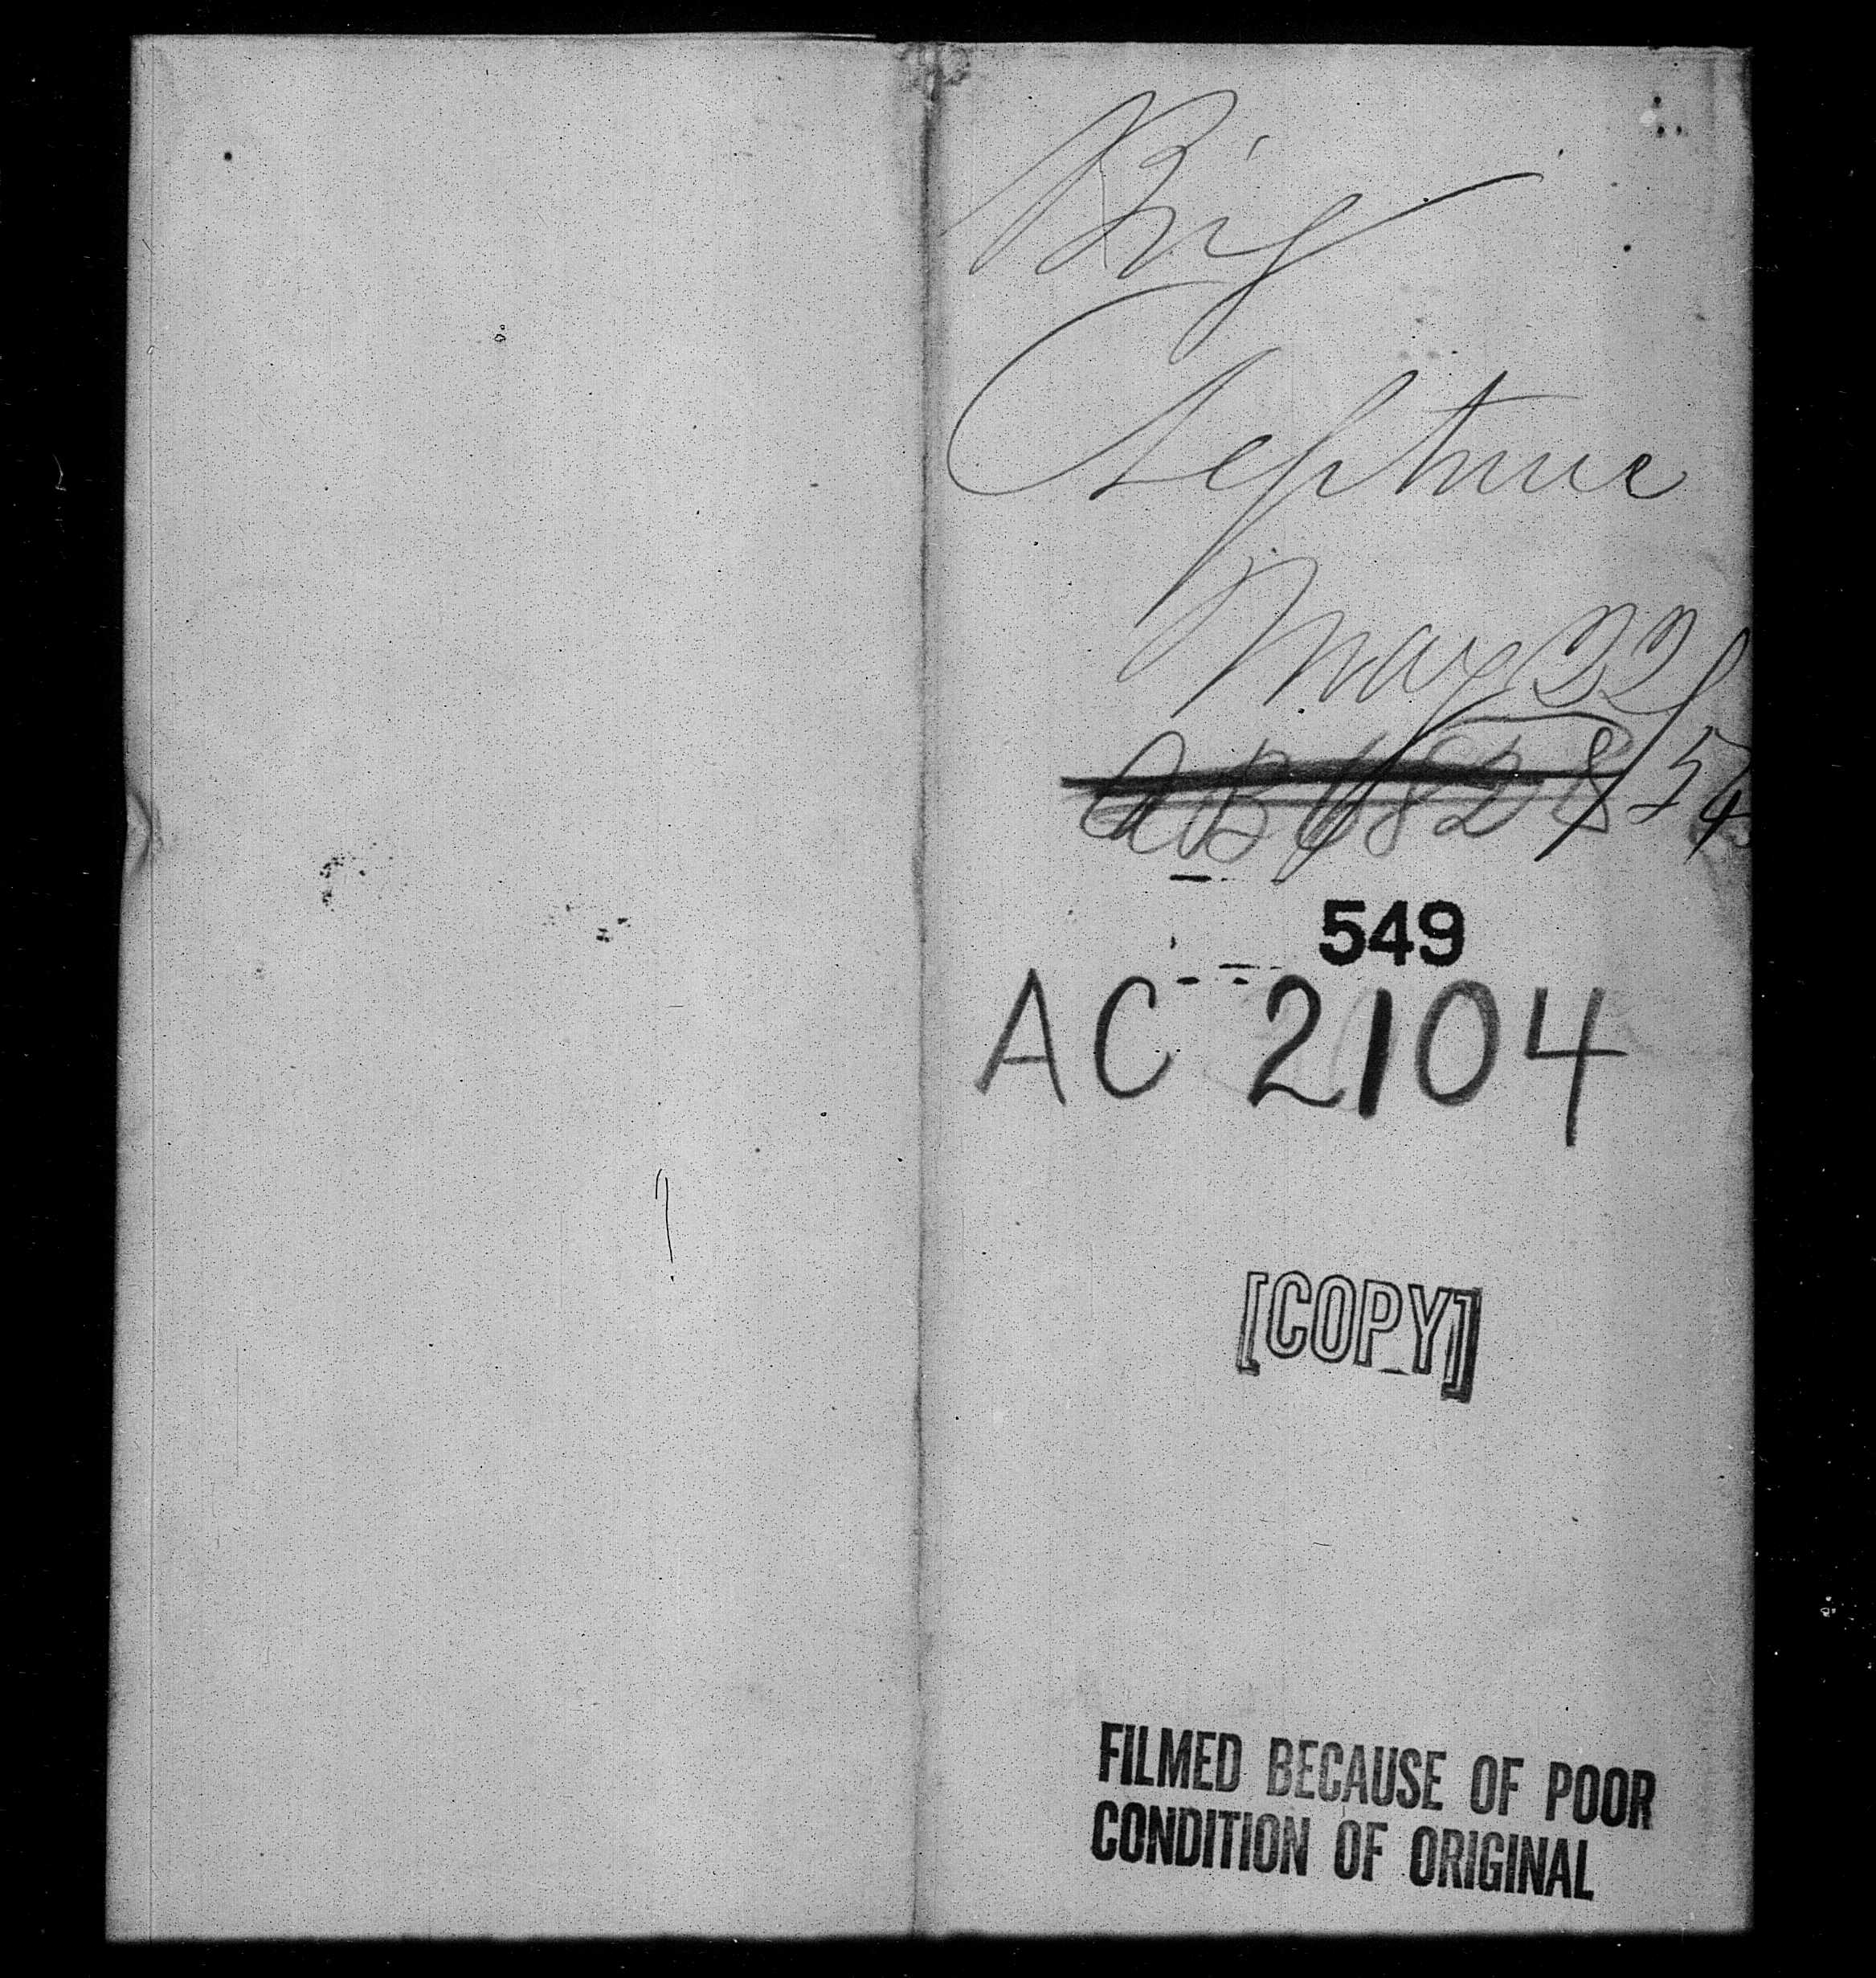 Brig
Neptune
May 22/54
549
AC 2104
[COPY]
FILMED BECAUSE OF POOR
CONDITION OF ORIGINAL